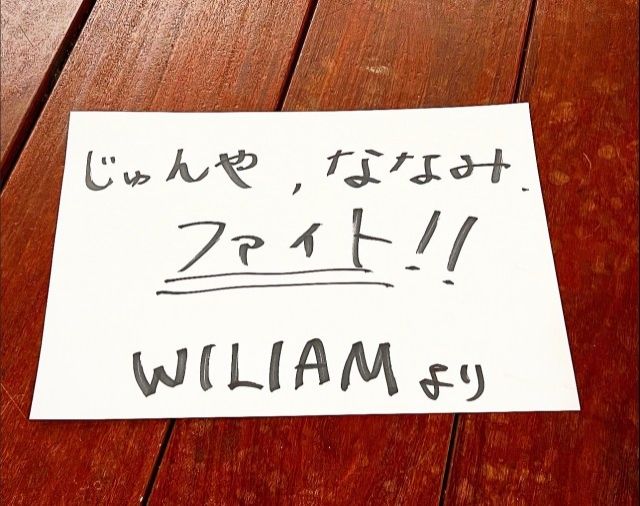 じゅんや , ななみ.
ファイト!!
WILIAM より